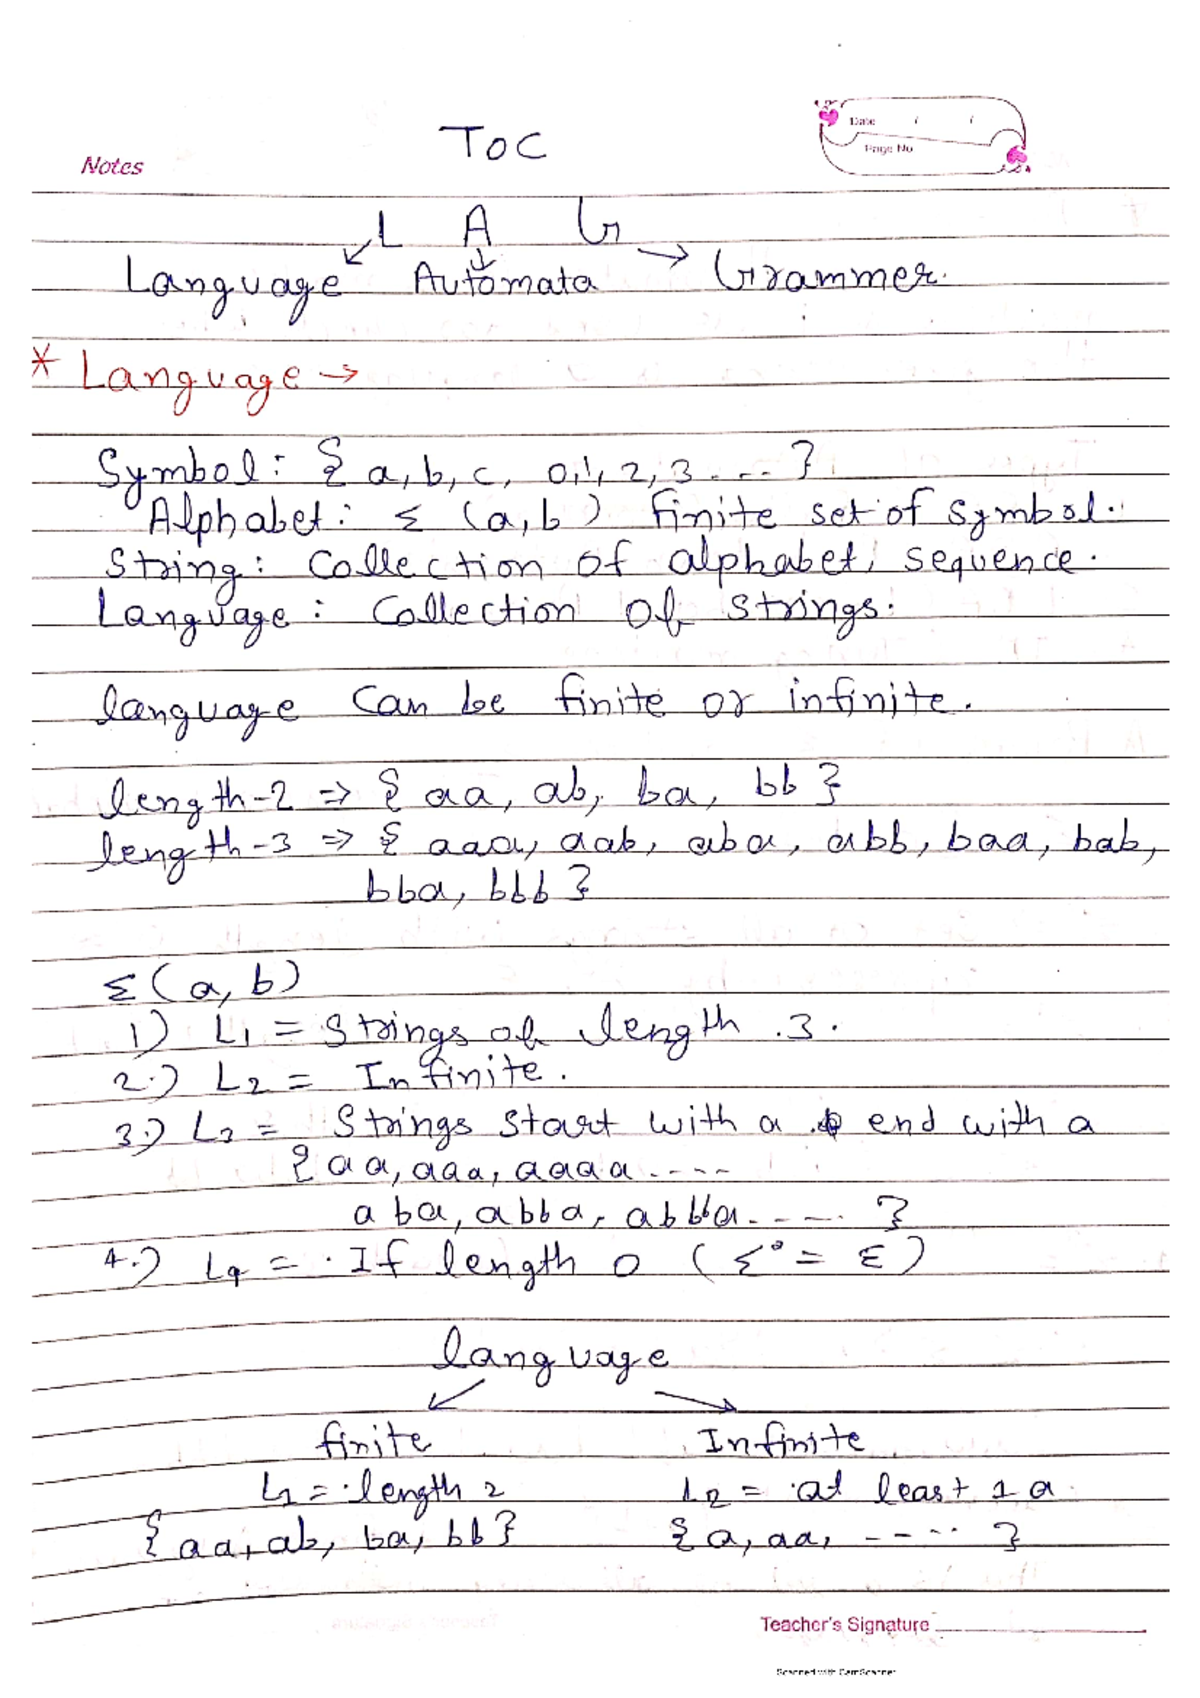 TOC
Date / /
Page No
Notes
L A G
Language Automata Grammer.
* Language →
Symbol: { a, b, c, 0, 1, 2, 3 ... }
Alphabet: Σ (a, b) finite set of symbol.
String: Collection of alphabet, sequence.
Language: Collection of strings.
language can be finite or infinite.
length-2 => { aa, ab, ba, bb }
length-3 => { aaa, aab, aba, abb, baa, bab,
bba, bbb }
Σ (a, b)
1) L1 = Strings of length 3.
2.) L2 = Infinite.
3.) L3 = Strings start with a & end with a
{ aa, aaa, aaaa ....
aba, abba, abbba .... }
4.) L4 = If length 0 ( Σ° = Ɛ )
language
finite Infinite
L1 = length 2 L2 = at least 1 a
{ aa, ab, ba, bb } { a, aa, ..... }
Teacher's Signature
Scanned with CamScanner